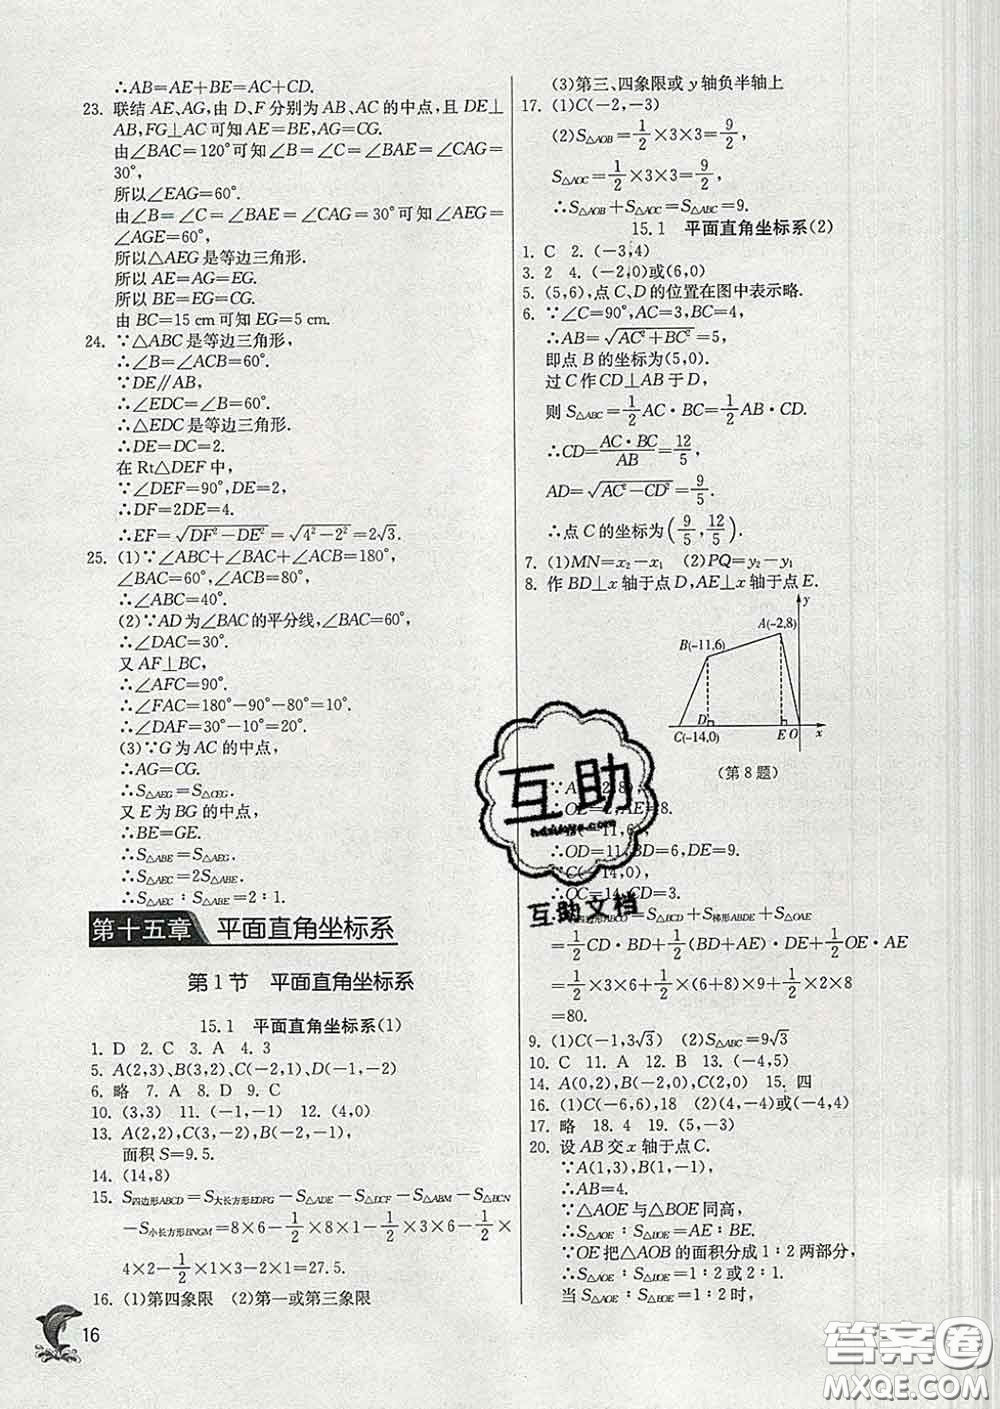 ∴AB=AE+BE=AC+CD.
23. 联结 AE、AG,由 D、F 分别为 AB、AC 的中点,且 DE⊥
AB,FG⊥AC 可知 AE=BE,AG=CG.
由∠BAC=120°可知∠B=∠C=∠BAE=∠CAG=
30°,
所以∠EAG=60°.
由∠B=∠C=∠BAE=∠CAG=30°可知∠AEG=
∠AGE=60°,
所以△AEG 是等边三角形.
所以 AE=AG=EG.
所以 BE=EG=CG.
由 BC=15 cm 可知 EG=5 cm.
24. ∵△ABC 是等边三角形,
∴∠B=∠ACB=60°.
∵DE∥AB,
∴∠EDC=∠B=60°.
∴△EDC 是等边三角形.
∴DE=DC=2.
在 Rt△DEF 中,
∵∠DEF=90°,DE=2,
∴DF=2DE=4.
∴EF=√(DF²-DE²)=√(4²-2²)=2√3.
25. (1)∵∠ABC+∠BAC+∠ACB=180°,
∠BAC=60°,∠ACB=80°,
∴∠ABC=40°.
(2)∵AD 为∠BAC 的平分线,∠BAC=60°,
∴∠DAC=30°.
又 AF⊥BC,
∴∠AFC=90°.
∴∠FAC=180°-90°-80°=10°.
∴∠DAF=30°-10°=20°.
(3)∵G 为 AC 的中点,
∴AG=CG.
∴S△AEG=S△CEG.
又 E 为 BG 的中点,
∴BE=GE.
∴S△ABE=S△AEG.
∴S△AEC=2S△ABE.
∴S△AEC∶S△ABE=2∶1.
第十五章 平面直角坐标系
第1节 平面直角坐标系
15.1 平面直角坐标系(1)
1. D 2. C 3. A 4. 3
5. A(2,3)、B(3,2)、C(-2,1)、D(-1,-2)
6. 略 7. A 8. D 9. C
10. (3,3) 11. (-1,-1) 12. (4,0)
13. A(2,2),C(3,-2),B(-2,-1),
面积 S=9.5.
14. (14,8)
15. S四边形ABCD=S大长方形EDFG-S△ADE-S△DCF-S△ABM-S△BCN
-S小长方形BNGM=8×6-1/2×8×1-1/2×3×6-1/2×
4×2-1/2×1×3-2×1=27.5.
16. (1)第四象限 (2)第一或第三象限
16
(3)第三、四象限或 y 轴负半轴上
17. (1)C(-2,-3)
(2)S△AOB=1/2×3×3=9/2,
S△AOC=1/2×3×3=9/2,
∴S△AOB+S△AOC=S△ABC=9.
15.1 平面直角坐标系(2)
1. C 2. (-3,4)
3. 2 4. (-2,0)或(6,0)
5. (5,6),点 C、D 的位置在图中表示略.
6. ∵∠C=90°,AC=3,BC=4,
∴AB=√(AC²+BC²)=5,
即点 B 的坐标为(5,0).
过 C 作 CD⊥AB 于 D,
则 S△ABC=1/2 AC·BC=1/2 AB·CD.
∴CD=AC·BC/AB=12/5,
AD=√(AC²-CD²)=9/5.
∴点 C 的坐标为(9/5,12/5).
7. (1)MN=x₂-x₁ (2)PQ=y₂-y₁
8. 作 BD⊥x 轴于点 D,AE⊥x 轴于点 E.
y
A(-2,8)
B(-11,6)
D
C(-14,0)
E O
x
(第 8 题)
∴OE=2,AE=8.
∴OD=11,BD=6,DE=9.
∴OC=14,CD=3.
=S△BCD+S梯形ABDE+S△OAE
=1/2 CD·BD+1/2(BD+AE)·DE+1/2 OE·AE
=1/2×3×6+1/2×(6+8)×9+1/2×2×8
=80.
9. (1)C(-1,3√3) (2)S△ABC=9√3
10. C 11. A 12. B 13. (-4,5)
14. A(0,2),B(-2,0),C(2,0) 15. 四
16. (1)C(-6,6),18 (2)(4,-4)或(-4,4)
17. 略 18. 4 19. (5,-3)
20. 设 AB 交 x 轴于点 C.
∵A(1,3),B(1,-1),
∴AB=4.
∵△AOE 与△BOE 同高,
∴S△AOE∶S△BOE=AE∶BE.
∵OE 把△AOB 的面积分成 1∶2 两部分,
∴S△AOE∶S△BOE=1∶2 或 2∶1.
当 S△AOE∶S△BOE=1∶2 时,
互助
互助文档
答案卷
MXQE.COM